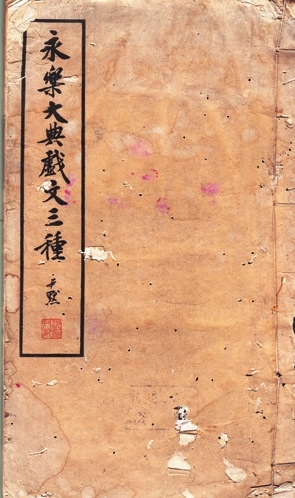 永樂大典戲文三種
尹默